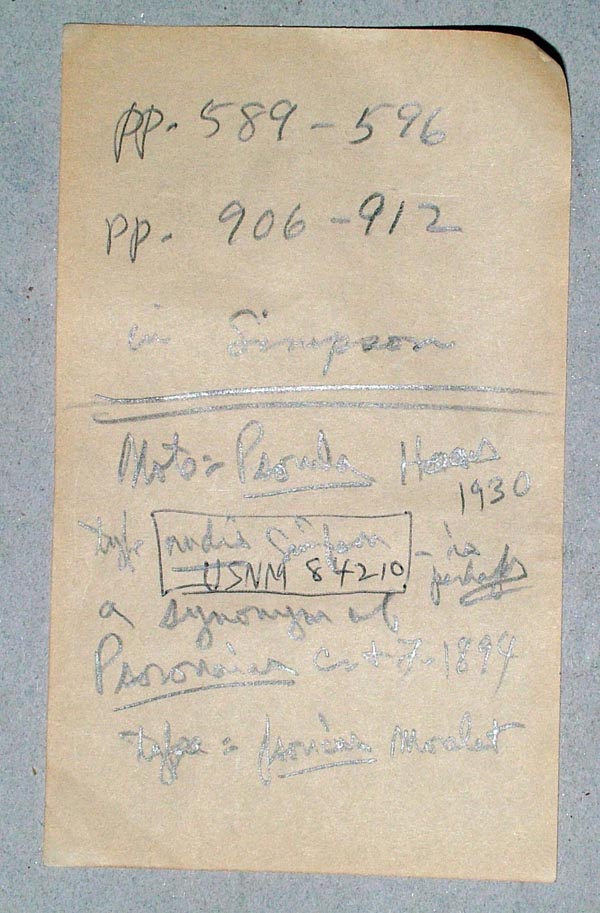 pp. 589 - 596
pp. 906 - 912
in Simpson
Psorula Haas
1930
type rudis Simpson - is
USNM 84210 perhaps
a synonym of
Psoronaias C. + F. 1894
type = psoricus Morelet